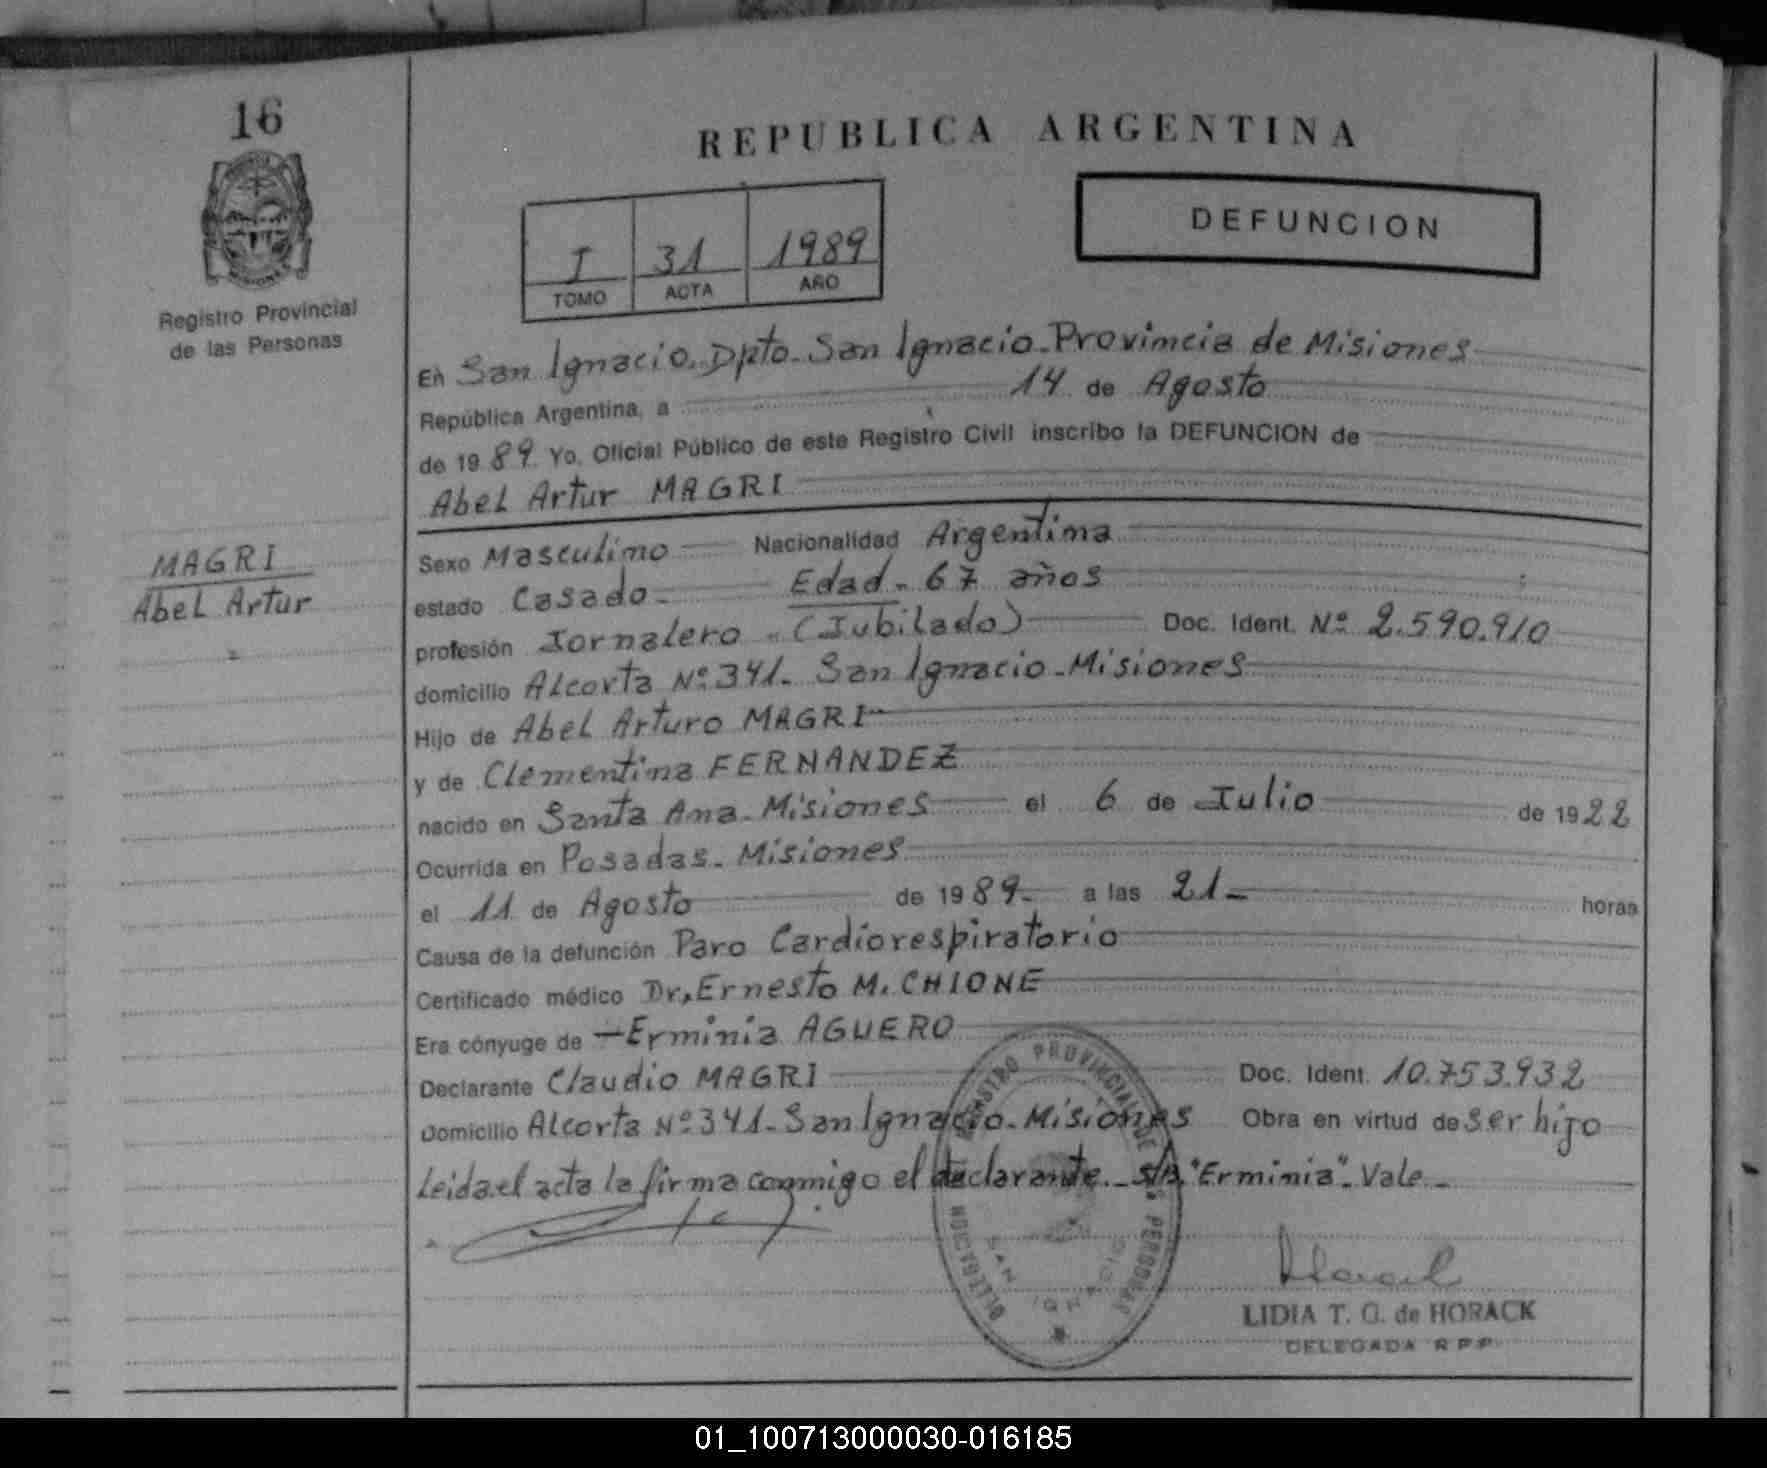 16
Registro Provincial
de las Personas
MAGRI
Abel Artur
REPUBLICA ARGENTINA
I 31 1989
TOMO ACTA AÑO
DEFUNCION
En San Ignacio. Dpto. San Ignacio. Provincia de Misiones
República Argentina, a 14 de Agosto
de 1989. Yo, Oficial Público de este Registro Civil inscribo la DEFUNCION de
Abel Artur MAGRI
Sexo Masculino Nacionalidad Argentina
estado Casado. Edad. 67 años
profesión Jornalero. (Jubilado) Doc. Ident. Nº 2.590.910
domicilio Alcorta Nº 341. San Ignacio. Misiones
Hijo de Abel Arturo MAGRI
y de Clementina FERNANDEZ
nacido en Santa Ana. Misiones el 6 de Julio de 1922
Ocurrida en Posadas. Misiones
el 11 de Agosto de 1989. a las 21 horas
Causa de la defunción Paro Cardiorespiratorio
Certificado médico Dr. Ernesto M. CHIONE
Era cónyuge de Erminia AGUERO
Declarante Claudio MAGRI Doc. Ident. 10.753.932
Domicilio Alcorta Nº 341. San Ignacio. Misiones Obra en virtud de ser hijo
Leida el acta la firma conmigo el declarante. S/b. "Erminia". Vale.
REGISTRO PROVINCIAL DE LAS PERSONAS
DELEGACION
SAN IGNACIO
LIDIA T. G. de HORACK
DELEGADA R.P.P.
01_100713000030-016185